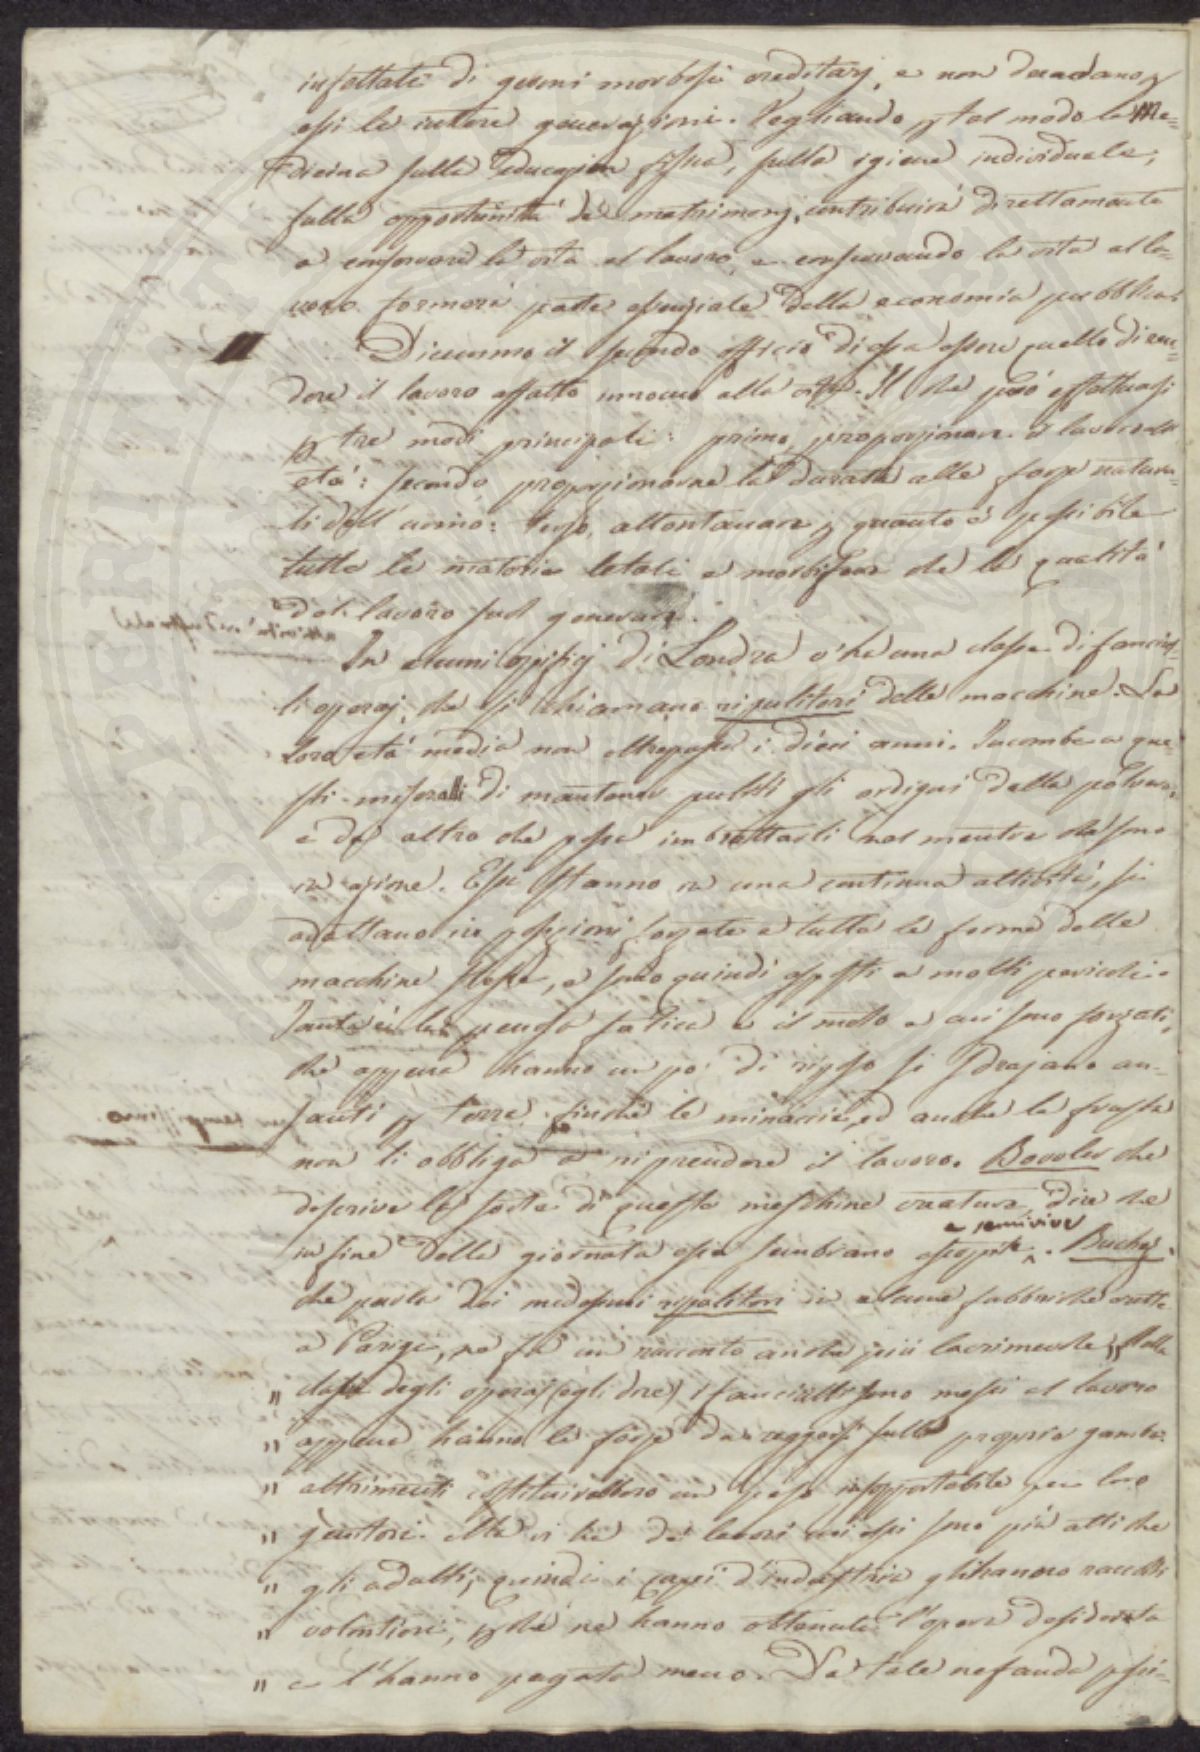 infettate di germi morbosi ereditarj, e non decadano p
essi le intere generazioni. Vegliando p tal modo la Me-
dicina sulla educazion fisica, sulla igiene individuale,
sulla opportunità de' matrimonj, contribuirà direttamente
a conservare la vita al lavoro, e conservando la vita al la-
voro formerà parte essenziale della economia pubblica.
II Dicemmo il secondo officio di essa essere quello di ren-
dere il lavoro affatto innocuo alla vita. Il che può effettuarsi
p tre modi principali: primo, proporzionare il lavoro alla
età: secondo, proporzionarne la durata alle forze natura-
li dell' uomo: terzo, allontanare p quanto è possibile
tutte le materie letali e morbifere che la qualità
del lavoro suol generare.
attività industriale
In alcuni opifizj di Londra v'ha una classe di fanciul-
li operaj, che si chiamano ripulitori delle macchine. La
loro età media non oltrepassa i dieci anni. Incombe a que-
sti miserelli di mantener puliti gli ordigni dalla polvere,
e da altro che possa imbrattarli nel mentre che sono
in azione. Essi stanno in una continua attività, si
adattano in posizioni forzate a tutte le forme delle
macchine stesse, e sono quindi esposti a molti pericoli.
Tanta è la penosa fatica e il moto a cui sono forzati,
che appena hanno un po' di riposo si sdrajano an-
santi p terra, finchè le minaccie, ed anche la frusta
non li obbliga a riprendere il lavoro. Bowley che
descrive la sorte di queste meschine creature, dice che
in fine della giornata esse sembrano
e semivive
. Buchez,
che parla dei medesimi ripulitori in alcune fabbriche
a Parigi, ne fa un racconto anche più lacrimevole; „ Nella
„ classe degli operaj (egli dice) i fanciulli sono messi al lavoro
„ appena hanno la forza da reggersi sulle proprie gambe:
„ altrimenti costituirebbero un peso insopportabile pei loro
„ genitori. Ma vi ha de' lavori cui essi sono più atti che
„ gli adulti, quindi i capi d'industria gli hanno raccolti
„ volentieri, p chè ne hanno ottenuta l'opera desiderata
„ e l'hanno pagata meno. Da tale nefanda